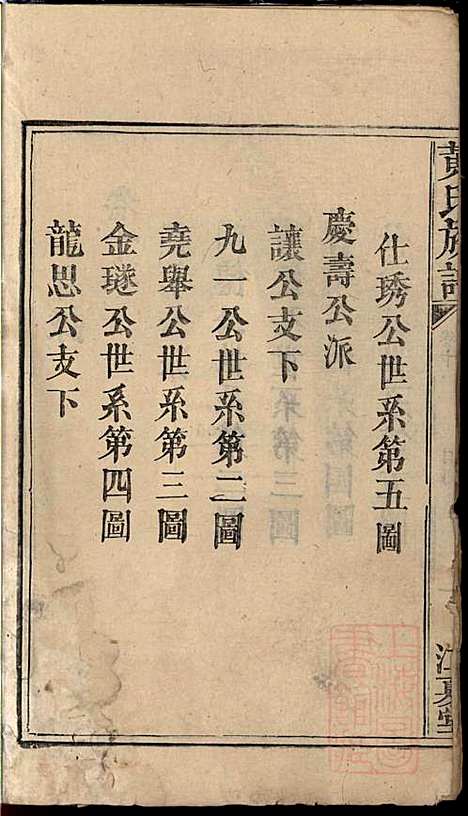 黄氏族譜
江夏堂
仕琇公世系第五圖
慶壽公派
讓公支下
九一公世系第二圖
堯舉公世系第三圖
金璲公世系第四圖
龍思公支下